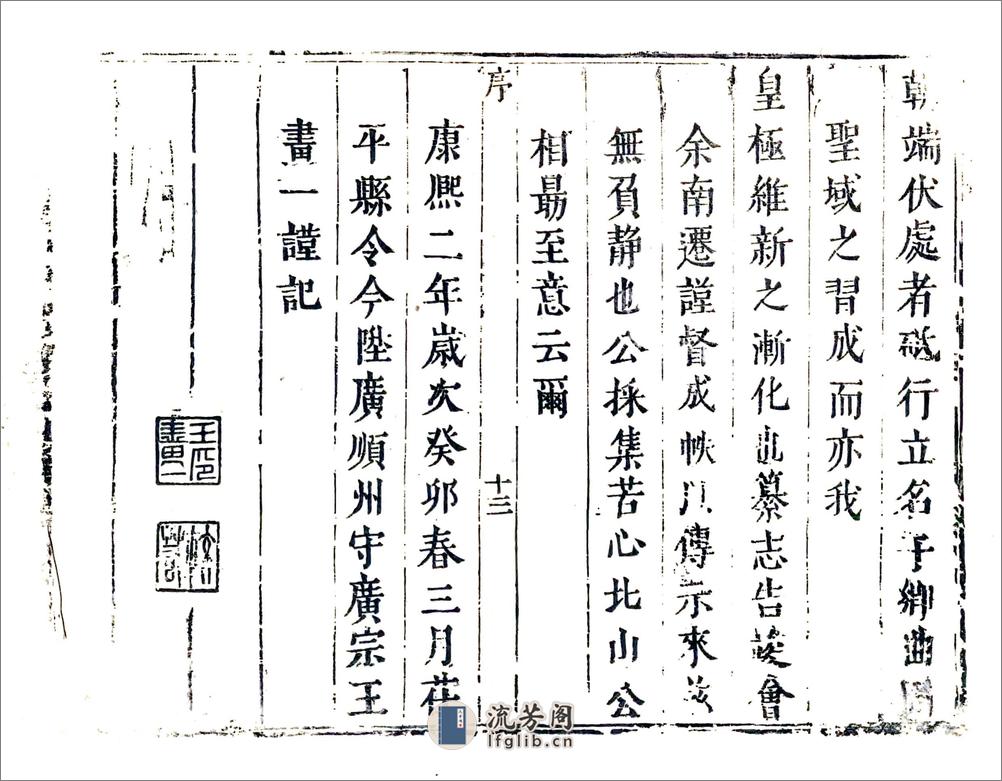 朝端伏處者砥行立名于鄉曲
聖域之習成而亦我
皇極維新之漸化也纂志告竣會
余南遷謹督成帙以傳示來茲
無負静也公採集苦心比山公
相朂至意云爾
序
十三
康熈二年歲次癸卯春三月茌
平縣令今陞廣順州守廣宗王
畫一謹記
王畫一印
流芳阁
lfglib.cn